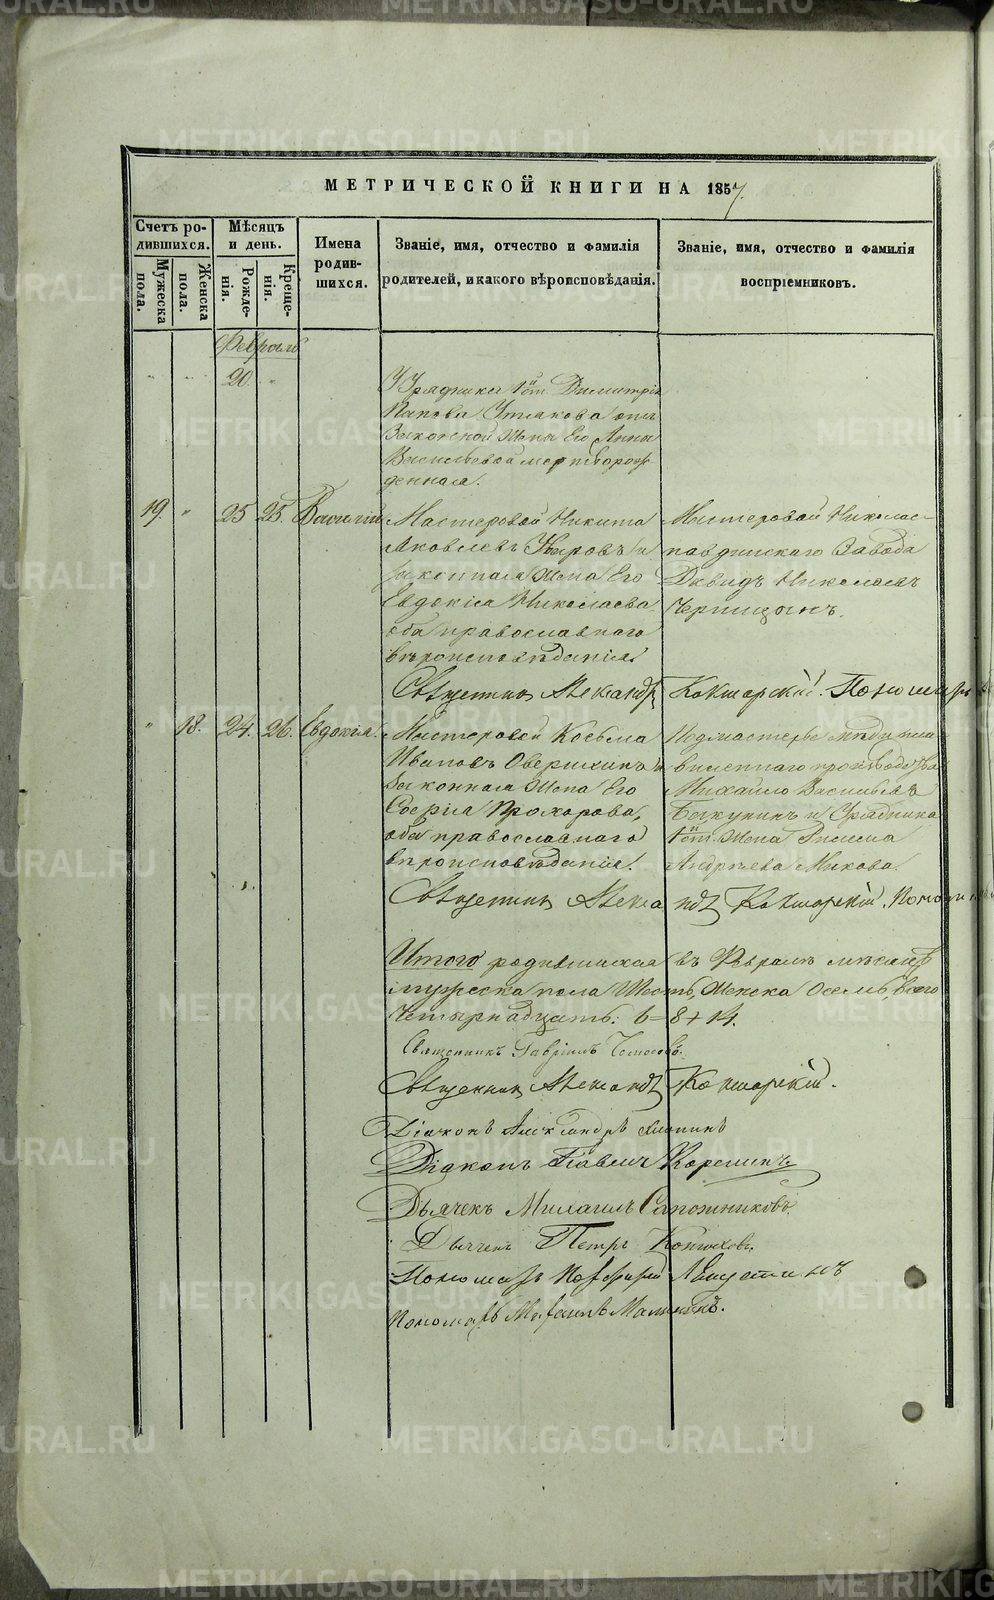 МЕТРИЧЕСКОЙ КНИГИ НА 1857.
Счетъ родившихся.
Мужеска пола.
Женска пола.
Мѣсяцъ и день.
Рожденія.
Крещенія.
Имена родившихся.
Званіе, имя, отчество и фамилія родителей, и какого вѣроисповѣданія.
Званіе, имя, отчество и фамилія воспріемниковъ.
Февраль
" " 20. "
Урядника 1й ст. Димитрія
законной жены Его Анны
Васильевой мертворож-
денная.
19. " 25 25. Василій
Мастеровой Никита
Яковлевъ и
законная жена Его
Евдокія Николаева
оба православнаго
вѣроисповѣданія.
Мастеровой Николае-
павдинскаго Завода
Давидъ Николаевъ
Черницынъ.
Священникъ Александръ Кокшарскій. Пономарь
" 18. 24. 26. Евдокія.
Мастеровой Косьма
Ивановъ и
законная жена Его
Софія Прохорова,
оба православнаго
вѣроисповѣданія.
Подмастерье мѣдипла-
виленнаго производства
Михайло Васильевъ
и Урядника
1й ст. жена
Андреева
Священникъ Александръ Кокшарскій.
Итого родившихся въ Февралѣ мѣсяцѣ
мужеска пола Шесть, женска Осемь, всего
Четырнадцать: 6 = 8 + 14.
Священникъ Гавріилъ
Священникъ Александръ Кокшарскій.
Діаконъ Александръ
Діаконъ Павелъ
Дьячекъ Михаилъ Сапожниковъ.
Дьячекъ Петръ Конюховъ.
Пономарь Порфирій Августинъ
Пономарь Михаилъ Малининъ.
METRIKI.GASO-URAL.RU